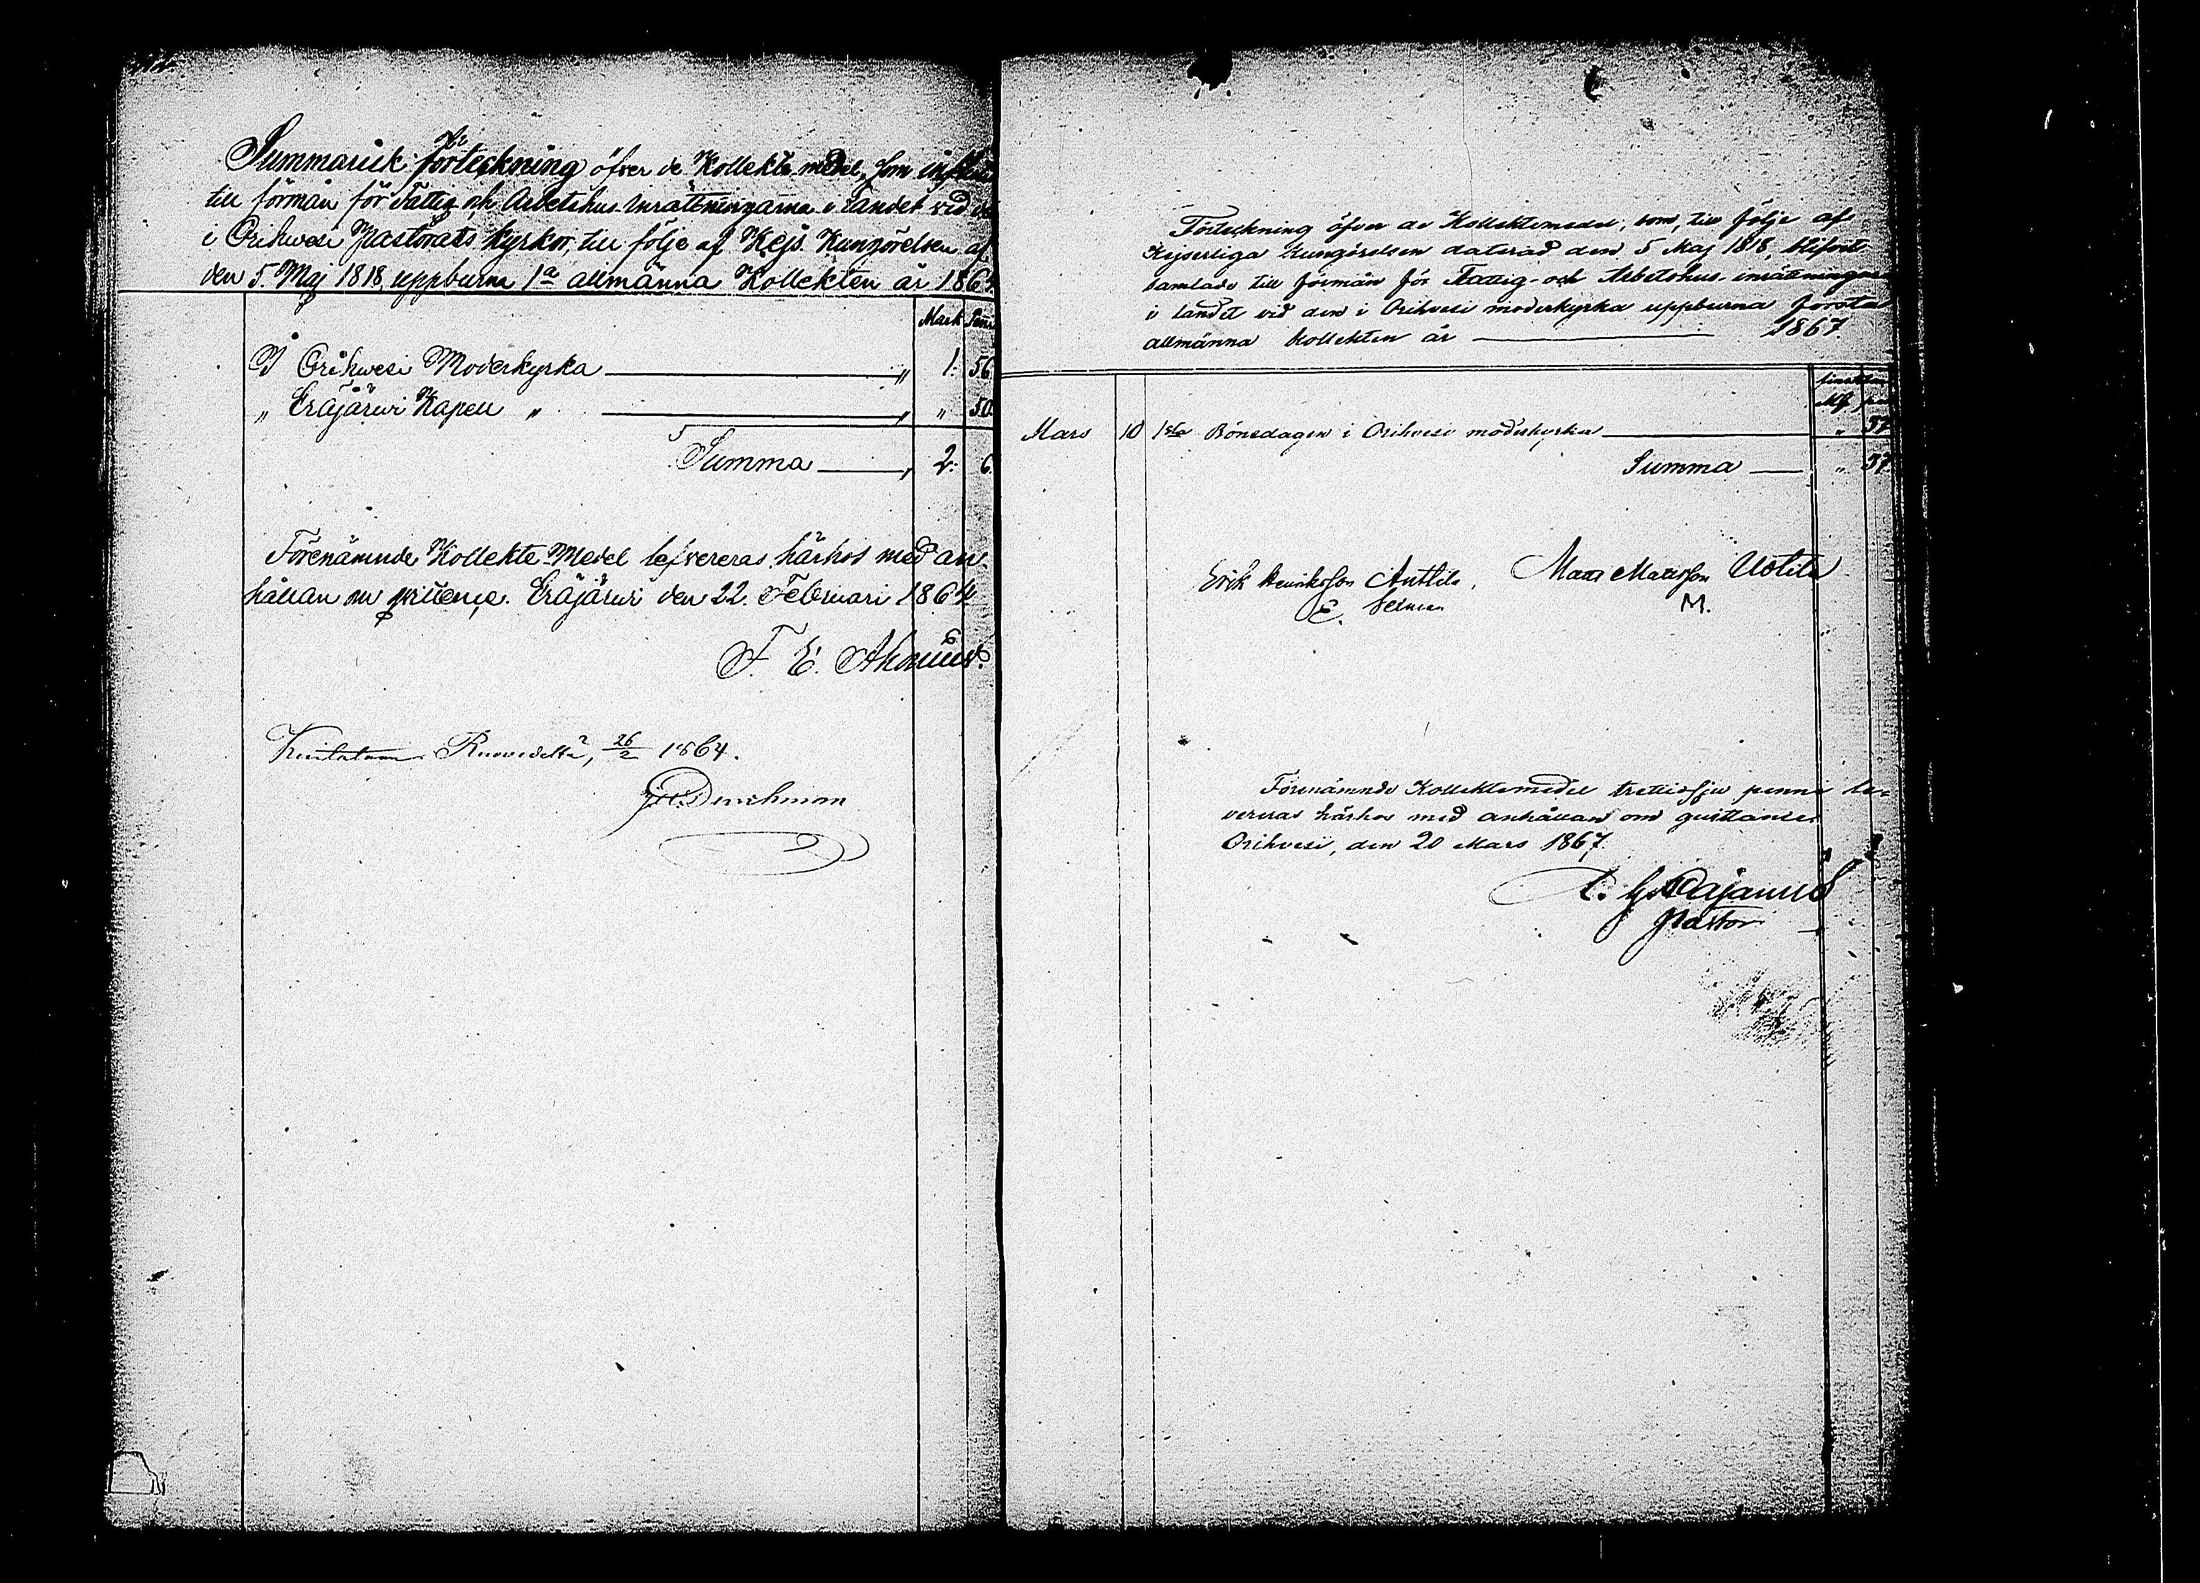 Summarisk förteckning öfver de Kollekte medel, som
till förmån för Fattig och Arbetshus-Inrättningarna i Landet vid de
i Orihwesi Pastorats kyrkor, till följe af Kejs. Kungörelsen af
den 5. Maj 1818, uppburna 1a allmänna Kollekten år 1864
Mark Penni
I Orihwesi Moderkyrka " 1: 56
" Eräjärwi Kapell " " " 50
Summa " 2: 6
Förenämnde Kollekte-Medel lefvereras härhos med an
hållan om qvittence. Eräjärwi den 22. Februari 1864
F. E. Ahonius
Kvitteras Ruovedellä, 26/2 1864.
Förteckning öfver de Kollektemedel, som, till följe af
Kejserliga Kungörelsen daterad den 5 Maj 1818, blifvit
samlade till förmån för Fattig- och Arbetshus-inrättningar
i landet vid den i Orihvesi moderkyrka uppburna första
allmänna kollekten år 1867.
Mars 10 1sta Bönedagen i Orihvesi moderkyrka " 37
Summa " 37
Erik Henriksson Anttila, Matts Mattsson Uotila
E. M.
Förenämnde Kollektemedel trettiosju penni le-
vereras härhos med anhållan om quittance.
Orihvesi, den 20 Mars 1867.
Pastor